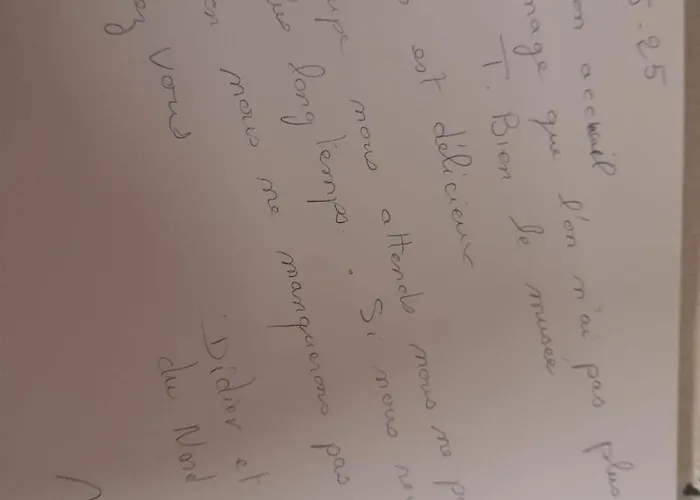 5-25
on accueil
mage que l'on n'ai pas plus
T. Bien le musee
est délicieux
nous attends nous ne p
long temps. Si nous re
en nous ne manquerons pas
ez vous
Didier et
du Nord